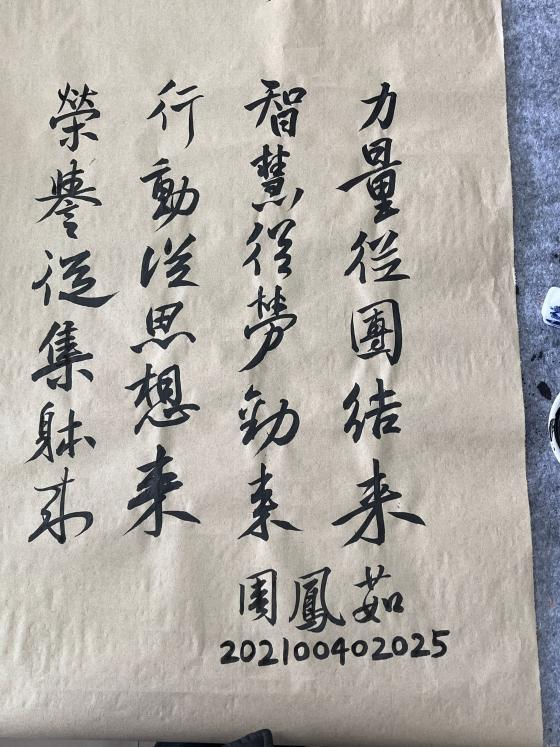 力量從團結来
智慧從勞動来
行動從思想来
榮譽從集躰来
周鳳茹
202100402025